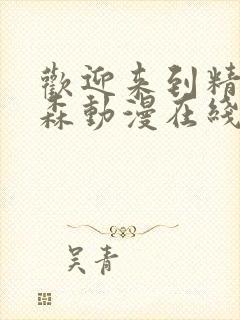 歡迎来到精
森動漫在綫
吴青